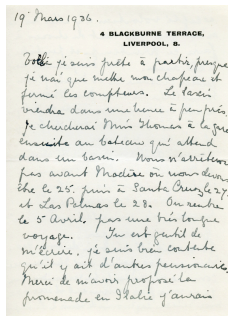 19 Mars 1936.
4 BLACKBURNE TERRACE,
LIVERPOOL, 8.
je suis prête à partir, presque
je n'ai que mettre mon chapeau et
fermé les compteurs. Le taxi
viendra dans une heure à peu près.
Je chercherai Miss Thomas à la gare
ensuite au bateau qui attend
dans un bassin. Nous n'arrivons
pas avant Madère où nous devons
être le 25 puis à Santa Cruz le 27
et Las Palmas le 28. On rentre
le 5 Avril, pas une très longue
voyage. Tu est gentil de
m'écrire, je suis bien contente
qu'il y ait d'autres pensionnaires.
Merci de m'avoir proposé la
promenade en Italie j'aurais